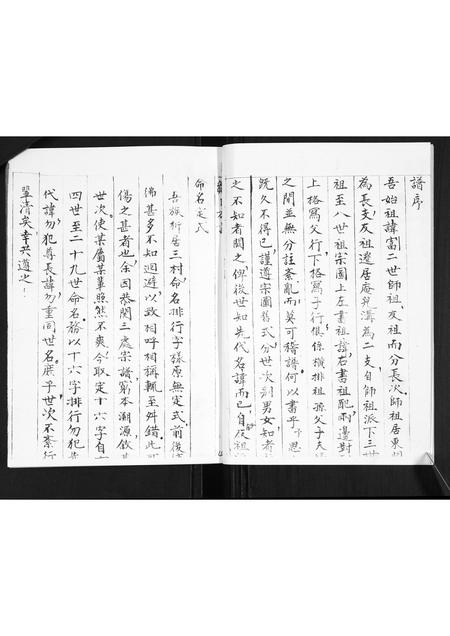 譜序
吾始祖諱富二世師祖、友祖而分長次師祖居東
為長支友祖遷居庵兒溝為二支自師祖派下三世
祖至八世祖宗圖上左書祖諱右書祖配兩邊對
上格寫父行下格寫子行俱係橫排祖孫父子夫
之間並無分註紊亂而莫可稽譜何以書乎思
既久不得已謹遵宗圖舊式分世次列男女知者
之不知者闕之俾後世知先代名諱而已自友祖
命名定式
吾族析居三村命名排行字樣原無定式前後
佛甚多不知迴避以致相呼相稱輒至舛錯此
傷之甚者也余因恭閱三處宗譜窮本溯源欽
世次使某屬某輩照然不爽今取定十六字自
四世至二十九世命名務以十六字排行勿犯
代諱勿犯尊長諱勿重同世名庶乎世次不紊行
輩清矣幸共遵之